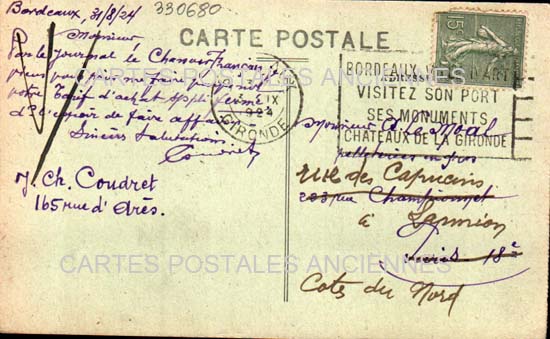 Bordeaux, 31/8/24
330680
Monsieur
Par le Journal le Chasseur Français
votre Tarif d'achat
D° espoir de faire affaire
Sincères Salutations
Coudret
J. Ch. Coudret
165 rue d'Arès.
CARTE POSTALE
15c
BORDEAUX
IX
1924
GIRONDE
BORDEAUX D'ART
VISITEZ SON PORT
SES MONUMENTS
CHATEAUX DE LA GIRONDE
Monsieur A. Le Moal
pelleteries en gros
rue des Capucins
203 rue Championnet
à Lannion
Paris 18e
Cotes du Nord
CARTES POSTALES ANCIENNES
CARTES POSTALES ANCIENNES